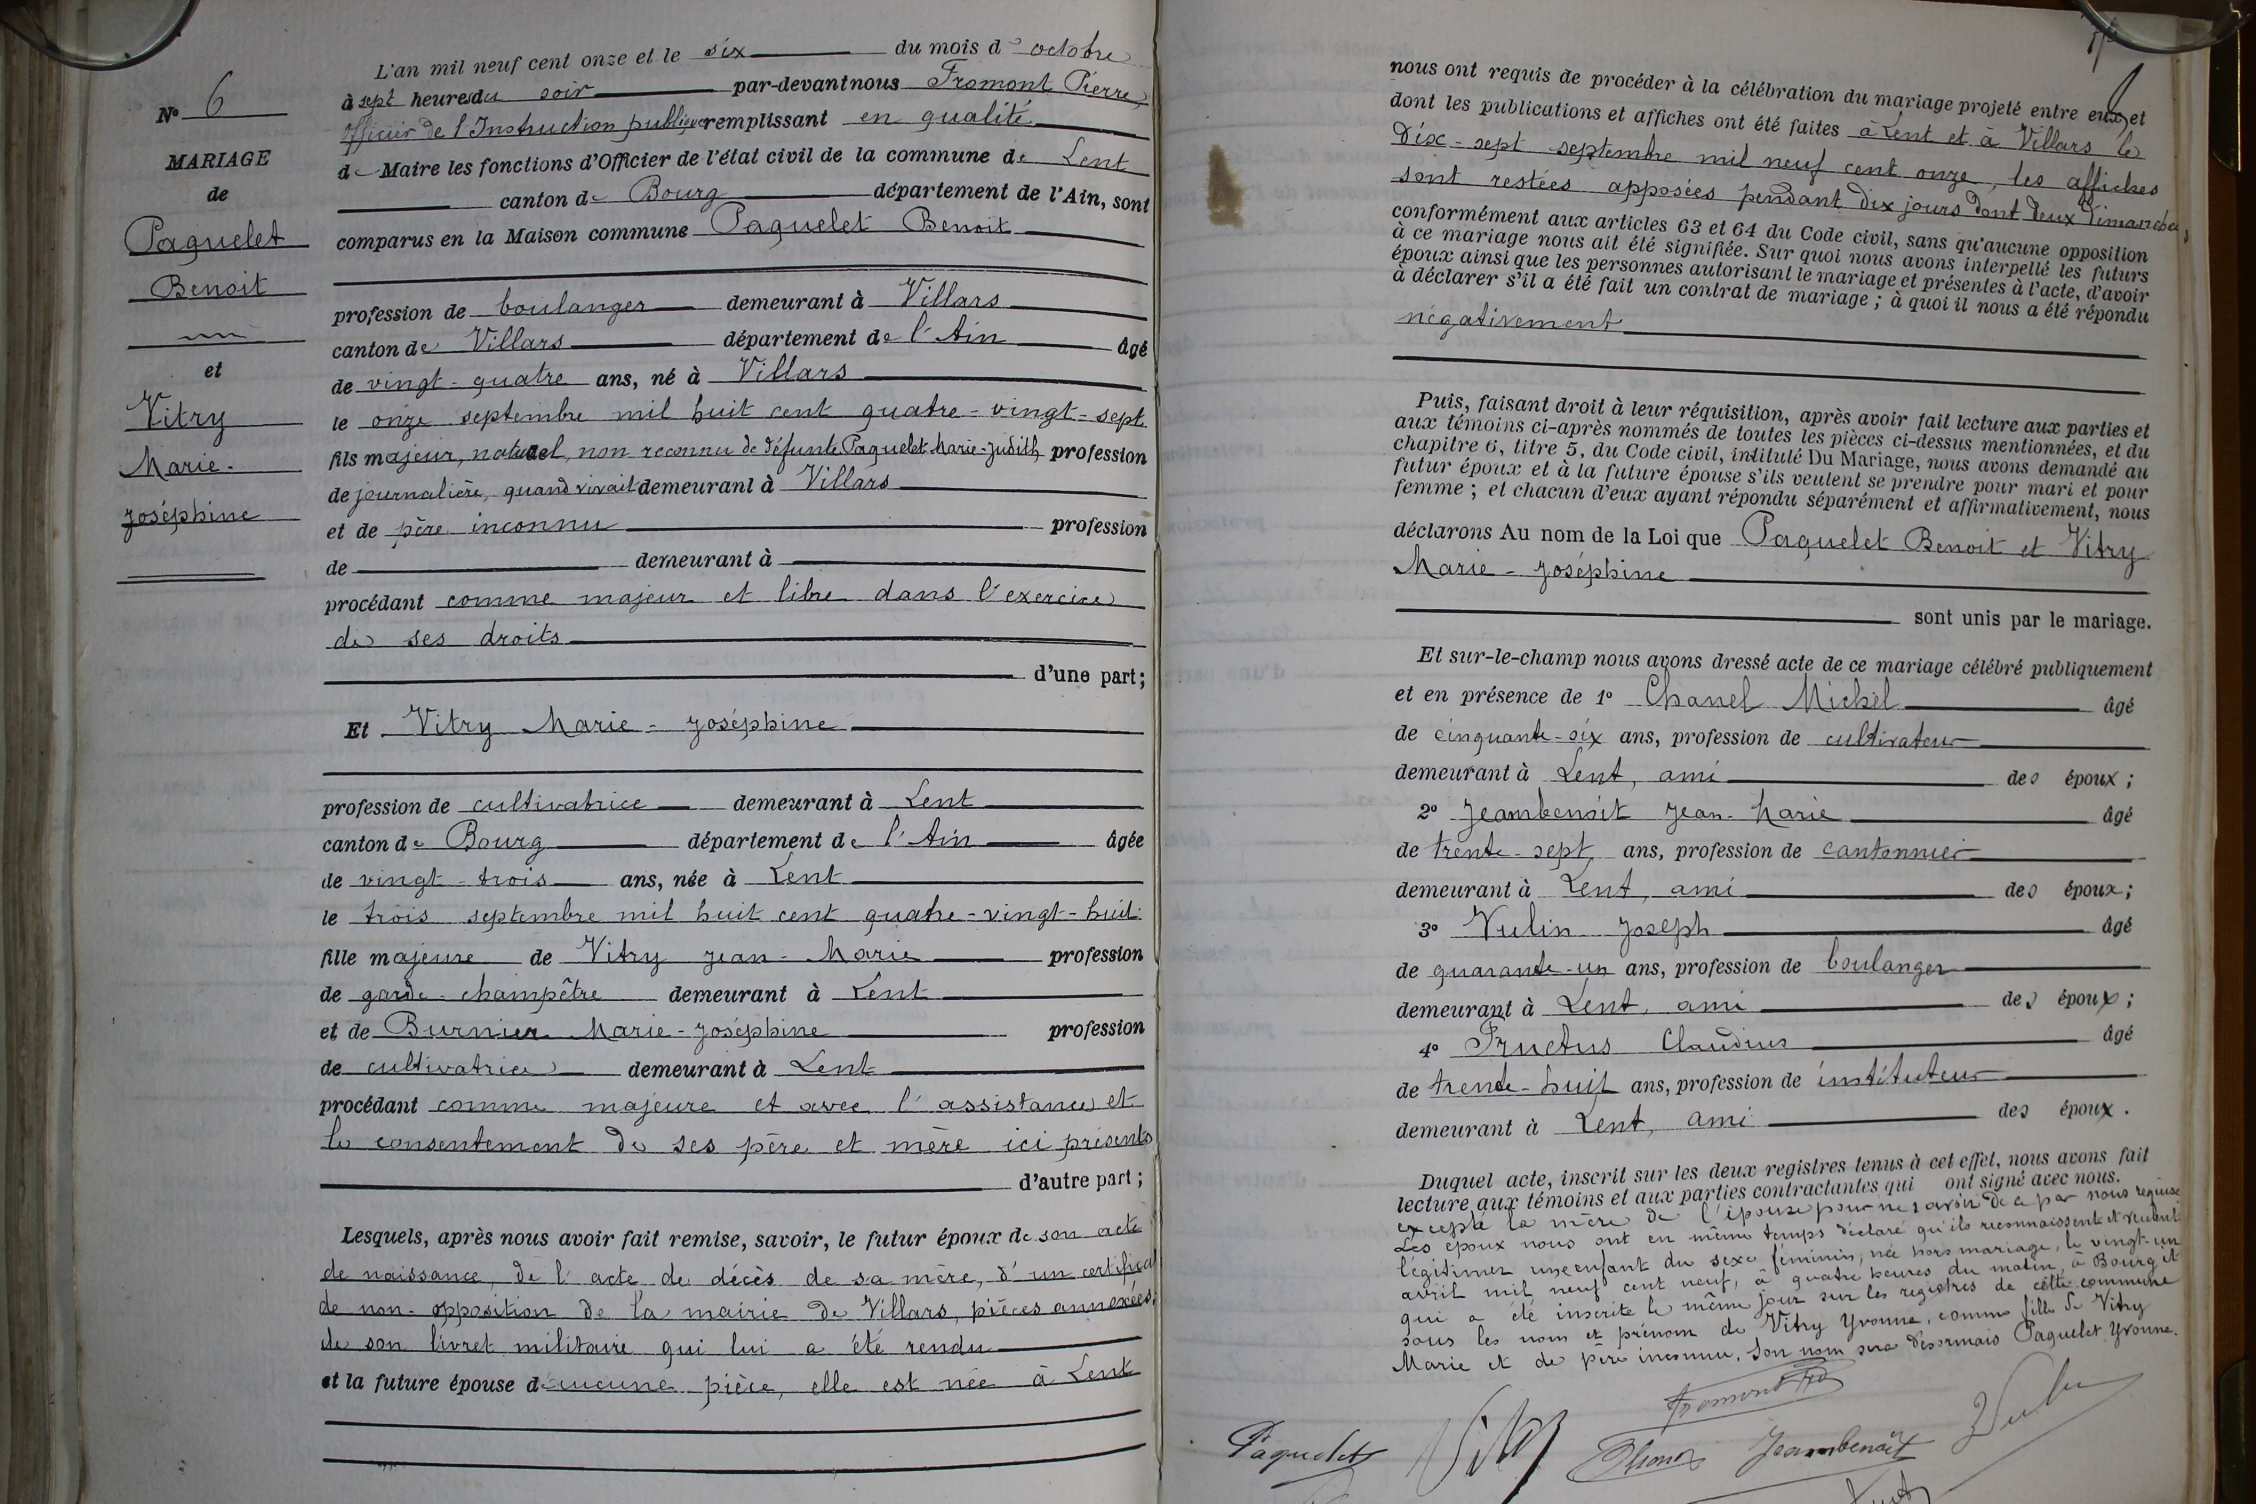 L'an mil neuf cent onze et le six du mois d'octobre
à sept heures du soir par-devant nous Fromont Pierre
officier de l'Instruction publique remplissant en qualité
de Maire les fonctions d'Officier de l'état civil de la commune de Lent
canton de Bourg département de l'Ain, sont
comparus en la Maison commune Paquelet Benoit
profession de boulanger demeurant à Villars
canton de Villars département de l'Ain âgé
de vingt-quatre ans, né à Villars
le onze septembre mil huit cent quatre-vingt-sept
fils majeur, naturel, non reconnu de défunte Paquelet Marie-Judith profession
de journalière, quand vivait demeurant à Villars
et de père inconnu profession
de demeurant à
procédant comme majeur et libre dans l'exercice
de ses droits
d'une part;
Et Vitry Marie-Joséphine
profession de cultivatrice demeurant à Lent
canton de Bourg département de l'Ain âgée
de vingt-trois ans, née à Lent
le trois septembre mil huit cent quatre-vingt-huit
fille majeure de Vitry Jean-Marie profession
de garde-champêtre demeurant à Lent
et de Burnier Marie-Joséphine profession
de cultivatrice demeurant à Lent
procédant comme majeure et avec l'assistance et
le consentement de ses père et mère ici présents
d'autre part;
Lesquels, après nous avoir fait remise, savoir, le futur époux de son acte
de naissance, de l'acte de décès de sa mère, d'un certificat
de non-opposition de la mairie de Villars, pièces annexées,
de son livret militaire qui lui a été rendu
et la future épouse d'aucune pièce, elle est née à Lent
N° 6
MARIAGE
de
Paquelet
Benoit
et
Vitry
Marie-
Joséphine
nous ont requis de procéder à la célébration du mariage projeté entre eux, et
dont les publications et affiches ont été faites à Lent et à Villars le
dix-sept septembre mil neuf cent onze, les affiches
sont restées apposées pendant dix jours dont deux dimanches,
conformément aux articles 63 et 64 du Code civil, sans qu'aucune opposition
à ce mariage nous ait été signifiée. Sur quoi nous avons interpellé les futurs
époux ainsi que les personnes autorisant le mariage et présentes à l'acte, d'avoir
à déclarer s'il a été fait un contrat de mariage; à quoi il nous a été répondu
négativement
Puis, faisant droit à leur réquisition, après avoir fait lecture aux parties et
aux témoins ci-après nommés de toutes les pièces ci-dessus mentionnées, et du
chapitre 6, titre 5, du Code civil, intitulé Du Mariage, nous avons demandé au
futur époux et à la future épouse s'ils veulent se prendre pour mari et pour
femme; et chacun d'eux ayant répondu séparément et affirmativement, nous
déclarons Au nom de la Loi que Paquelet Benoit et Vitry
Marie-Joséphine
sont unis par le mariage.
Et sur-le-champ nous avons dressé acte de ce mariage célébré publiquement
et en présence de 1° Chanel Michel âgé
de cinquante-six ans, profession de cultivateur
demeurant à Lent, ami des époux;
2° Jeambenoit Jean-Marie âgé
de trente-sept ans, profession de cantonnier
demeurant à Lent, ami des époux;
3° Vulin Joseph âgé
de quarante-un ans, profession de boulanger
demeurant à Lent, ami des époux;
4° Fructus Claudius âgé
de trente-huit ans, profession de instituteur
demeurant à Lent, ami des époux.
Duquel acte, inscrit sur les deux registres tenus à cet effet, nous avons fait
lecture aux témoins et aux parties contractantes qui ont signé avec nous.
excepté la mère de l'épouse pour ne savoir de ce par nous requise
Les époux nous ont en même temps déclaré qu'ils reconnaissent et veulent
légitimer une enfant du sexe féminin, née hors mariage, le vingt-un
avril mil neuf cent neuf, à quatre heures du matin, à Bourg et
qui a été inscrite le même jour sur les registres de cette commune
sous les nom et prénom de Vitry Yvonne, comme fille de Vitry
Marie et de père inconnu. Son nom sera désormais Paquelet Yvonne.
Fromont
Paquelet Vitry Chanel Jeambenoit Vulin